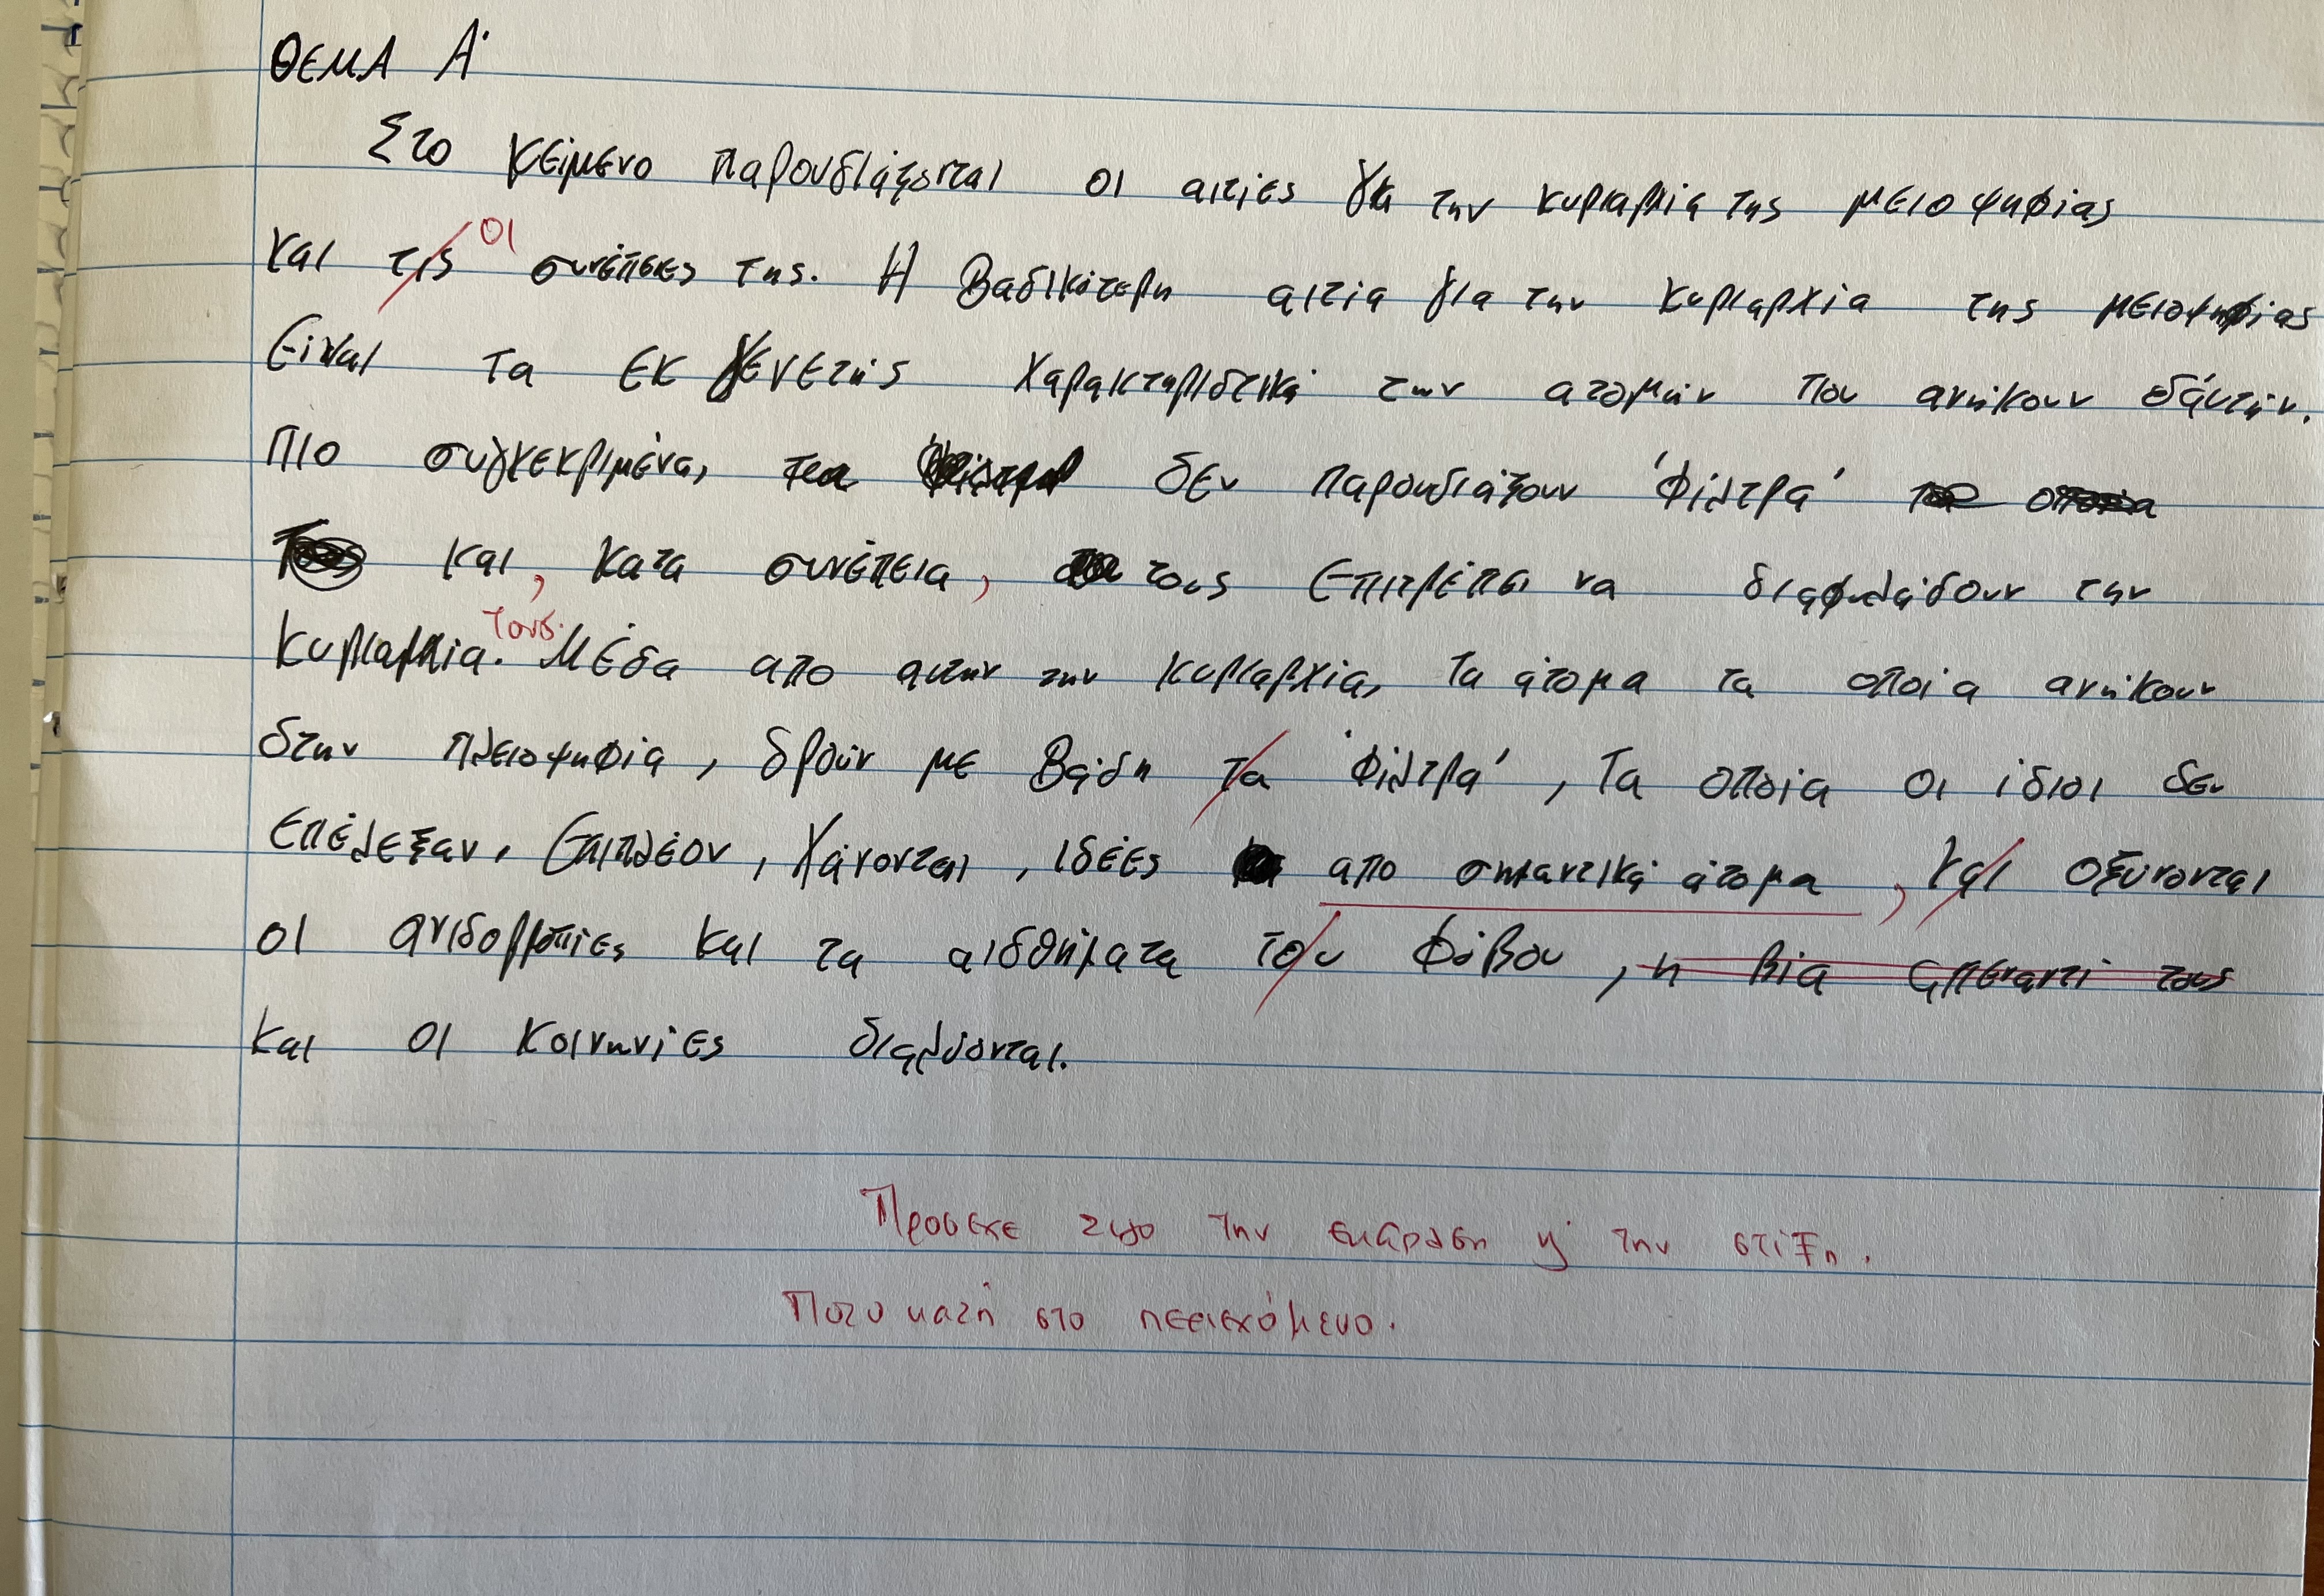 ΘΕΜΑ Α'
Στο κείμενο παρουσιάζονται οι αιτίες για την κυριαρχία της μειοψηφίας
και τις οι συνέπειες της. Η βασικότερη αιτία για την κυριαρχία της μειοψηφίας
είναι τα εκ γενετής χαρακτηριστικά των ατόμων που ανήκουν σ'αυτήν.
Πιο συγκεκριμένα, δεν παρουσιάζουν 'φίλτρα'
και, κατα συνέπεια, τους επιτρέπει να διαφυλάσουν την
κυριαρχία τους. Μέσα απο αυτην την κυριαρχία, τα άτομα τα οποία ανήκουν
στην πλειοψηφία, δρούν με βάση τα 'φίλτρα', τα οποία οι ίδιοι δεν
επέλεξαν. Επιπλέον, χάνονται, ιδέες απο σημαντικά άτομα, και οξύνονται
οι ανισορροπίες και τα αισθήματα του φόβου, η βία απέναντί τους
και οι κοινωνίες διαλύονται.
Πρόσεχε λίγο την έκφραση κ' την στίξη.
Πολύ καλή στο περιεχόμενο.